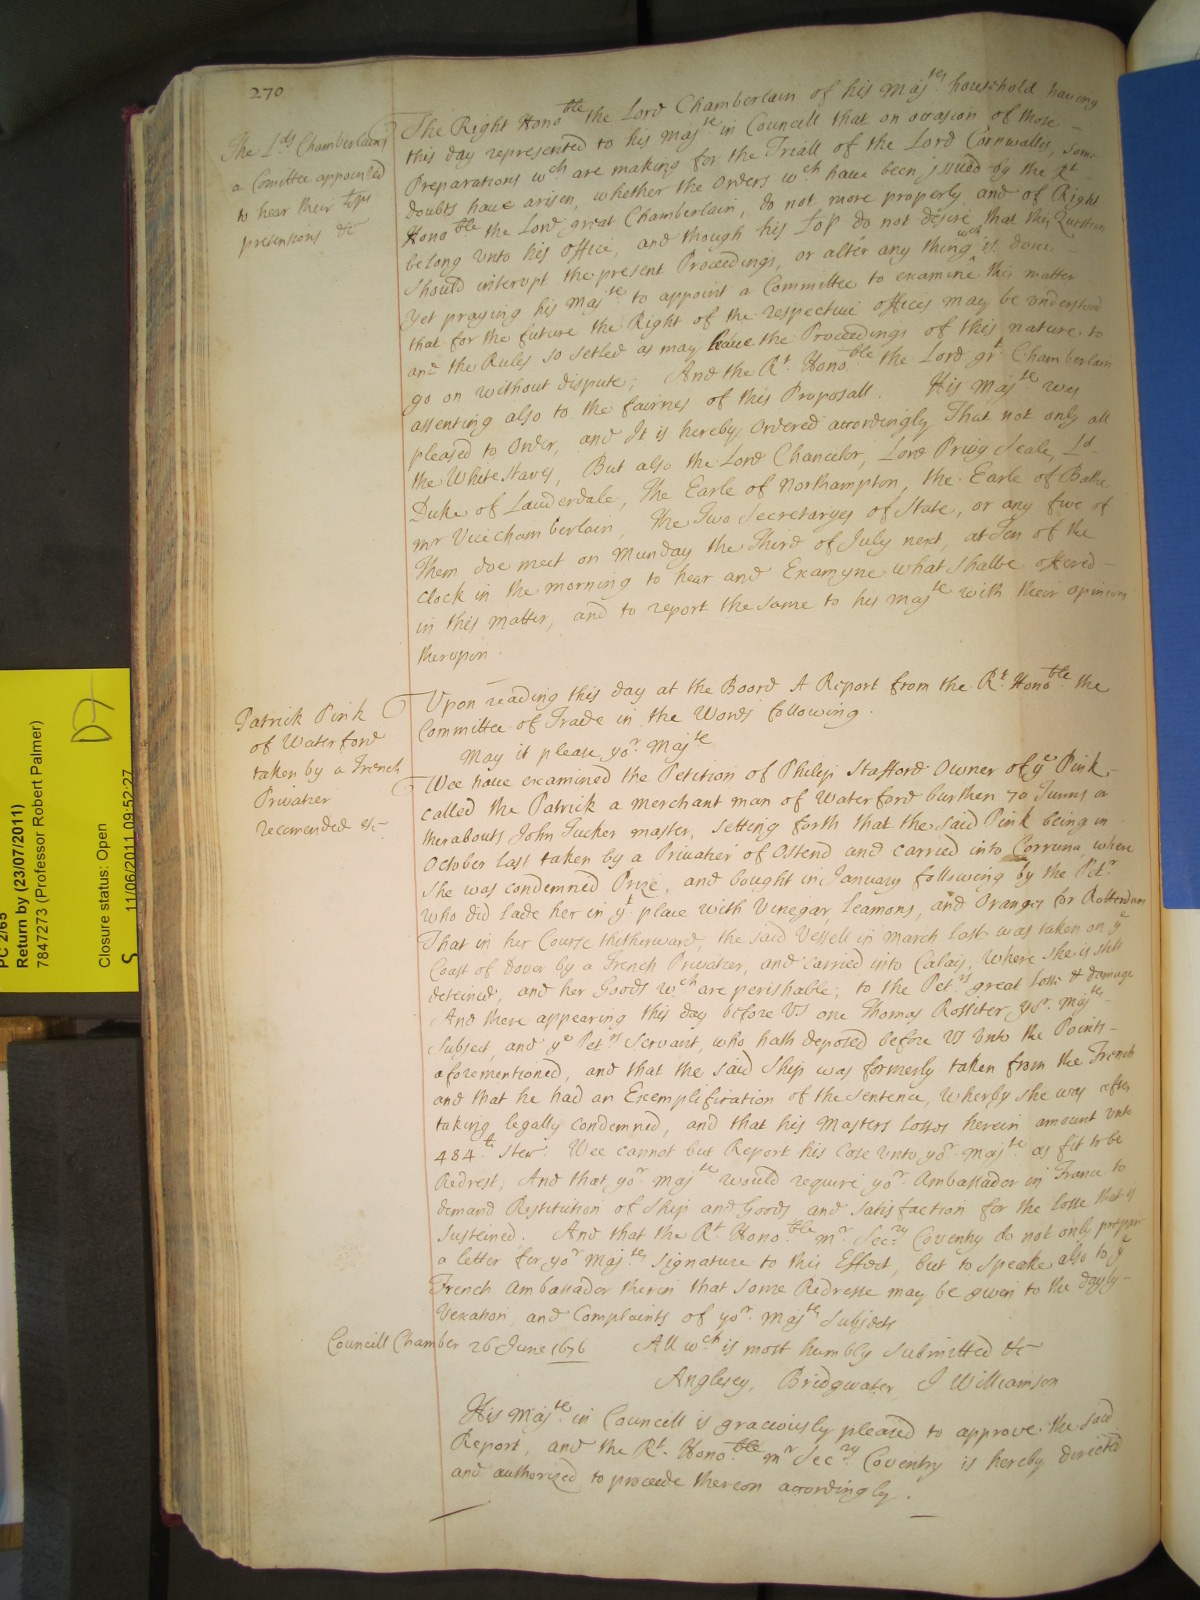 270
The L.ds Chamberlains
a Comittee appointed
to hear their Lps
pretensions &c
The Right Hono.ble the Lord Chamberlain of his Maj.tes household having
this day represented to his Maj.te in Councill that on occasion of those
Preparations w.ch are making for the Triall of the Lord Cornwallis, some
doubts have arisen, whether the Orders w.ch have been jssued by the R.t
Hono.ble the Lord great Chamberlain, do not more properly and of Right
belong unto his Office, and though his Lop do not desire that this Question
should interupt the present Proceedings, or alter any thing w.ch is done,
Yet praying his Maj.te to appoint a Committee to examine this matter
that for the future the Right of the respective offices may be understood
and the Rules so setled as may have the Proceedings of this nature to
go on without dispute; And the R.t Hono.ble the Lord gr.t Chamberlain
assenting also to the fairnes of this Proposall. His Maj.te was
pleased to Order, and It is hereby Ordered accordingly That not only all
the White Staves, But also the Lord Chancelor, Lord Privy Seale, L.d
Duke of Lauderdale, The Earle of Northampton, the Earle of Bathe
mr Vicechamberlain, The Two Secretaryes of State, or any five of
Them doe meet on Munday the Third of July next, at Ten of the
clock in the morning to hear and Examyne what shalbe offered
in this matter, and to report the same to his Maj.te with their opinions
therupon.
Patrick Pink
of Waterford
taken by a French
Privatier
recomended &c
Upon reading this day at the Board A Report from the R.t Hono.ble the
Committee of Trade in the Words following.
May it please yo.r Maj.te
Wee have examined the Petition of Philip Stafford Owner of y.e Pink,
called the Patrick a merchant man of Waterford burthen 70 Tunns or
therabouts John Tucker master, Setting forth that the said Pink being in
October last taken by a Privatier of Ostend and carried into Corruna, where
she was condemned Prize, and bought in January following by the Pet.r
who did lade her in y.t place with Vinegar, Leamons, and Oranges for Rotterdam
That in her Course thitherward, the said Vessell in March last was taken on y.e
Coast of Dover by a French Privatier, and carried into Calais, where she is still
deteined, and her Goods w.ch are perishable, to the Pet.rs great losse & damage
And there appearing this day before Us one Thomas Rossiter, yo.r Maj.tes
Subject, and y.e Pet.rs Servant, who hath deposed before Us unto the Points
aforementioned, and that the said Ship was formerly taken from the French
and that he had an Exemplification of the Sentence, wherby she was after
taking, legally condemned, and that his Masters losses herein amount unto
484.ll Ster. Wee cannot but Report his Case unto yo.r Maj.te as fit to be
Redrest, And that yo.r Maj.te would require yo.r Ambassador in France to
demand Restitution of Ship and Goods and Satisfaction for the losse that is
Susteined. And that the R.t Hono.ble mr Sec.ry Coventry do not only prepare
a letter for yo.r Maj.tes Signature to this Effect, but to speake also to y.e
French Ambassador therin that some Redresse may be given to the dayly
Vexation and Complaints of yo.r Maj.tes Subjects
Councill Chamber 26 June 1676 All w.ch is most humbly Submitted &c
Anglesey, Bridgwater, J Williamson
His Maj.te in Councill is graciously pleased to approve the said
Report, and the R.t Hono.ble mr Sec.ry Coventry is hereby directed
and authorized to proceede thereon accordingly.
PC 2/65
Return by (23/07/2011)
7847273 (Professor Robert Palmer)
Closure status: Open
S 11/06/2011 09:52:27